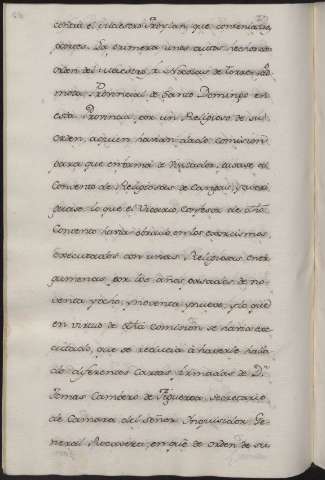 el Maestro Froylan, que contenia tres
piezas. La primera unos autos hechos de
orden del Maestro fr. Nicolas de Torres
mota, Provincial de Santo Domingo en
esta Provincia, por un Religioso de su
orden, a quien havian dado comision
para que en forma de Visitador, pasase al
Convento de Religiosas de Cangas, y averi
guase lo que el Vicario Confesor de dho
Convento havia obrado en los exorcismos
executados con unas Religiosas ener
gumenas por los años pasados de no
venta y ocho, y noventa y nueve, y lo que
en virtud de dha comision se havia exe
cutado, que se reducia á haverse halla
do diferentes Cartas firmadas de Dn
Tomas Cambero de Figueroa, Secretario
de Camara del Señor Inquisidor Ge
neral Rocaverti, en que de orden de su